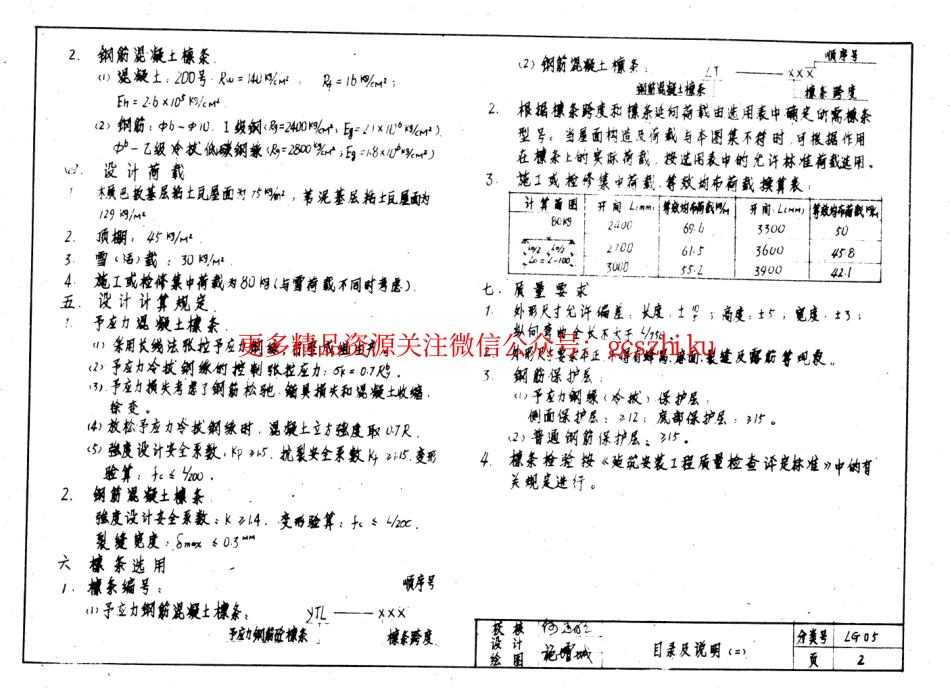 2. 钢筋混凝土檩条
(1) 混凝土:200号 Rw=140kg/cm², Rf=16kg/cm²;
Eh=2.6×10⁵kg/cm².
(2) 钢筋:φ6~φ10. I级钢(Rg=2400kg/cm², Eg=2.1×10⁶kg/cm²)
φᵇ-乙级冷拔低碳钢丝(Rg=2800kg/cm²; Eg=1.8×10⁶kg/cm²)
四. 设计荷载
1. 木质巴板基层粘土瓦屋面为75kg/m², 苇泥基层粘土瓦屋面为
129kg/m²
2. 顶棚:45kg/m².
3. 雪(活)载:30kg/m².
4. 施工或检修集中荷载为80kg(与雪荷载不同时考虑).
五. 设计计算规定
1. 予应力混凝土檩条.
(1) 采用长线法张拉予应力钢丝,
(2) 予应力冷拔钢丝的控制张拉应力:σk=0.7
(3). 予应力损失考虑了钢筋松弛. 锚具损失和混凝土收缩.
徐变。
(4) 放松予应力冷拔钢丝时, 混凝土立方强度取0.7R.
(5) 强度设计安全系数, Kp≥1.5. 抗裂安全系数Kf≥1.15. 变形
验算:fc≤l/200.
2. 钢筋混凝土檩条
强度设计安全系数:K≥1.4. 变形验算:fc≤l/200.
裂缝宽度:δmax≤0.3mm
六 檩条选用
1. 檩条编号:
顺序号
(1) 予应力钢筋混凝土檩条: YTL —— ×××
予应力钢筋砼檩条 檩条跨度
顺序号
(2) 钢筋混凝土檩条: LT —— ×××
钢筋混凝土檩条 檩条跨度
2. 根据檩条跨度和檩条延向荷载由选用表中确定所需檩条
型号. 当屋面构造及荷载与本图集不符时, 可根据作用
在檩条上的实际荷载, 按选用表中的允许标准荷载选用。
3. 施工或检修集中荷载. 等效均布荷载换算表:
计算简图 开间L(mm) 等效均布荷载kg/m 开间L(mm) 等效均布荷载kg/m
80kg 2400 69.6 3300 50
l0/2 l0/2 2700 61.5 3600 45.8
l0=L-100 3000 55.2 3900 42.1
七. 质量要求
1. 外形尺寸允许偏差: 长度:±; 高度:±5; 宽度:±3;
纵向弯曲全长不大于l/750
2. 外形尺寸要求不正 不得有蜂窝. 麻面. 裂缝及露筋等现象。
3. 钢筋保护层:
(1) 予应力钢丝(冷拔)保护层:
侧面保护层:≥12; 底部保护层:≥15。
(2) 普通钢筋保护层:≥15。
4. 檩条检验按《建筑安装工程质量检查评定标准》中的有
关规定进行。
更多精品资源关注微信公众号:gcszhiku
校核
设计 施增城
绘图
目录及说明(二)
分类号 LG05
页 2